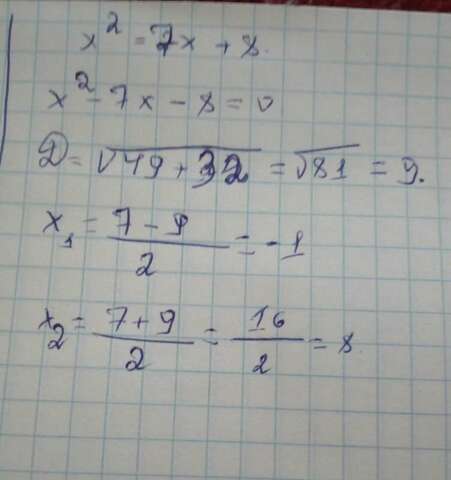 x² = 7x + 8.
x² - 7x - 8 = 0
D = √49 + 32 = √81 = 9.
x₁ = (7 - 9)/2 = -1
x₂ = (7 + 9)/2 = 16/2 = 8